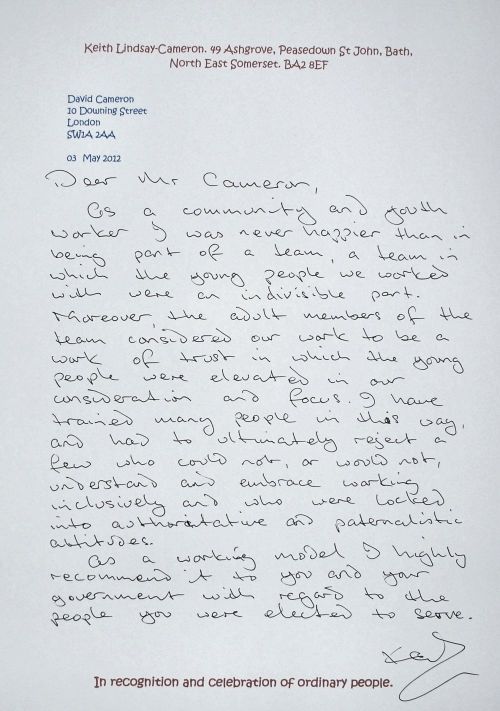 Keith Lindsay-Cameron. 49 Ashgrove, Peasedown St John, Bath,
North East Somerset. BA2 8EF
David Cameron
10 Downing Street
London
SW1A 2AA
03 May 2012
Dear Mr Cameron,
As a community and youth
worker I was never happier than in
being part of a team, a team in
which the young people we worked
with were an indivisible part.
Moreover, the adult members of the
team considered our work to be a
work of trust in which the young
people were elevated in our
consideration and focus. I have
trained many people in this way,
and had to ultimately reject a
few who could not, or would not,
understand and embrace working
inclusively and who were locked
into authoritative and paternalistic
attitudes.
As a working model I highly
recommend it to you and your
government with regard to the
people you were elected to serve.
Keith
In recognition and celebration of ordinary people.